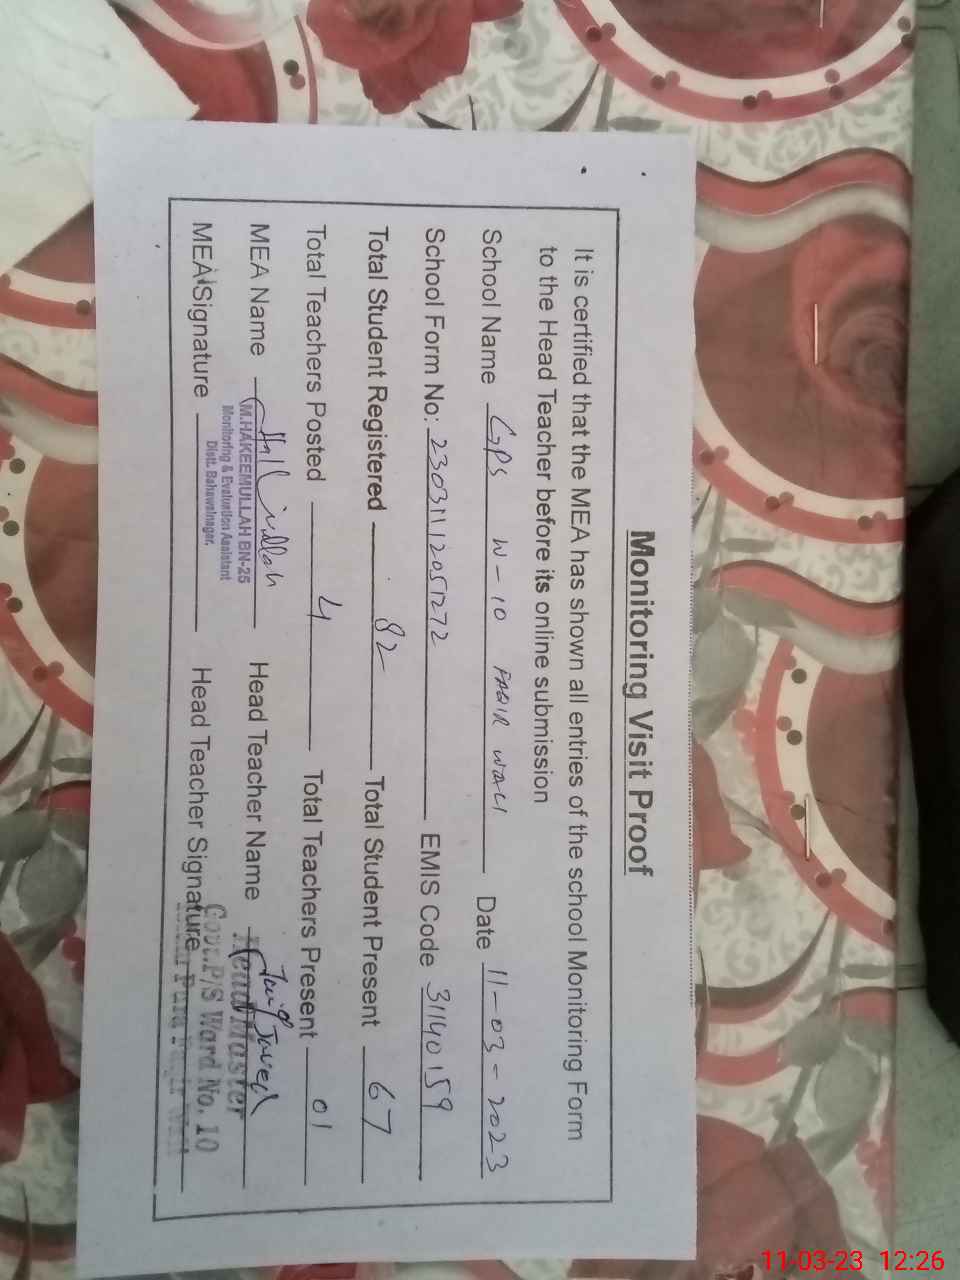 Monitoring Visit Proof
It is certified that the MEA has shown all entries of the school Monitoring Form
to the Head Teacher before its online submission
School Name GPS W-10 FAQIR WALI Date 11-03-2023
School Form No: 23031112051272 EMIS Code 31140159
Total Student Registered 82 Total Student Present 67
Total Teachers Posted 4 Total Teachers Present 01
MEA Name Head Teacher Name Javed
M.HAKEEMULLAH BN-25
Monitoring & Evaluation Assistant
Distt. Bahawalnager.
Head Master
MEA Signature Head Teacher Signature
Govt.P/S Ward No. 10
Pura Faqir Wali
11-03-23 12:26